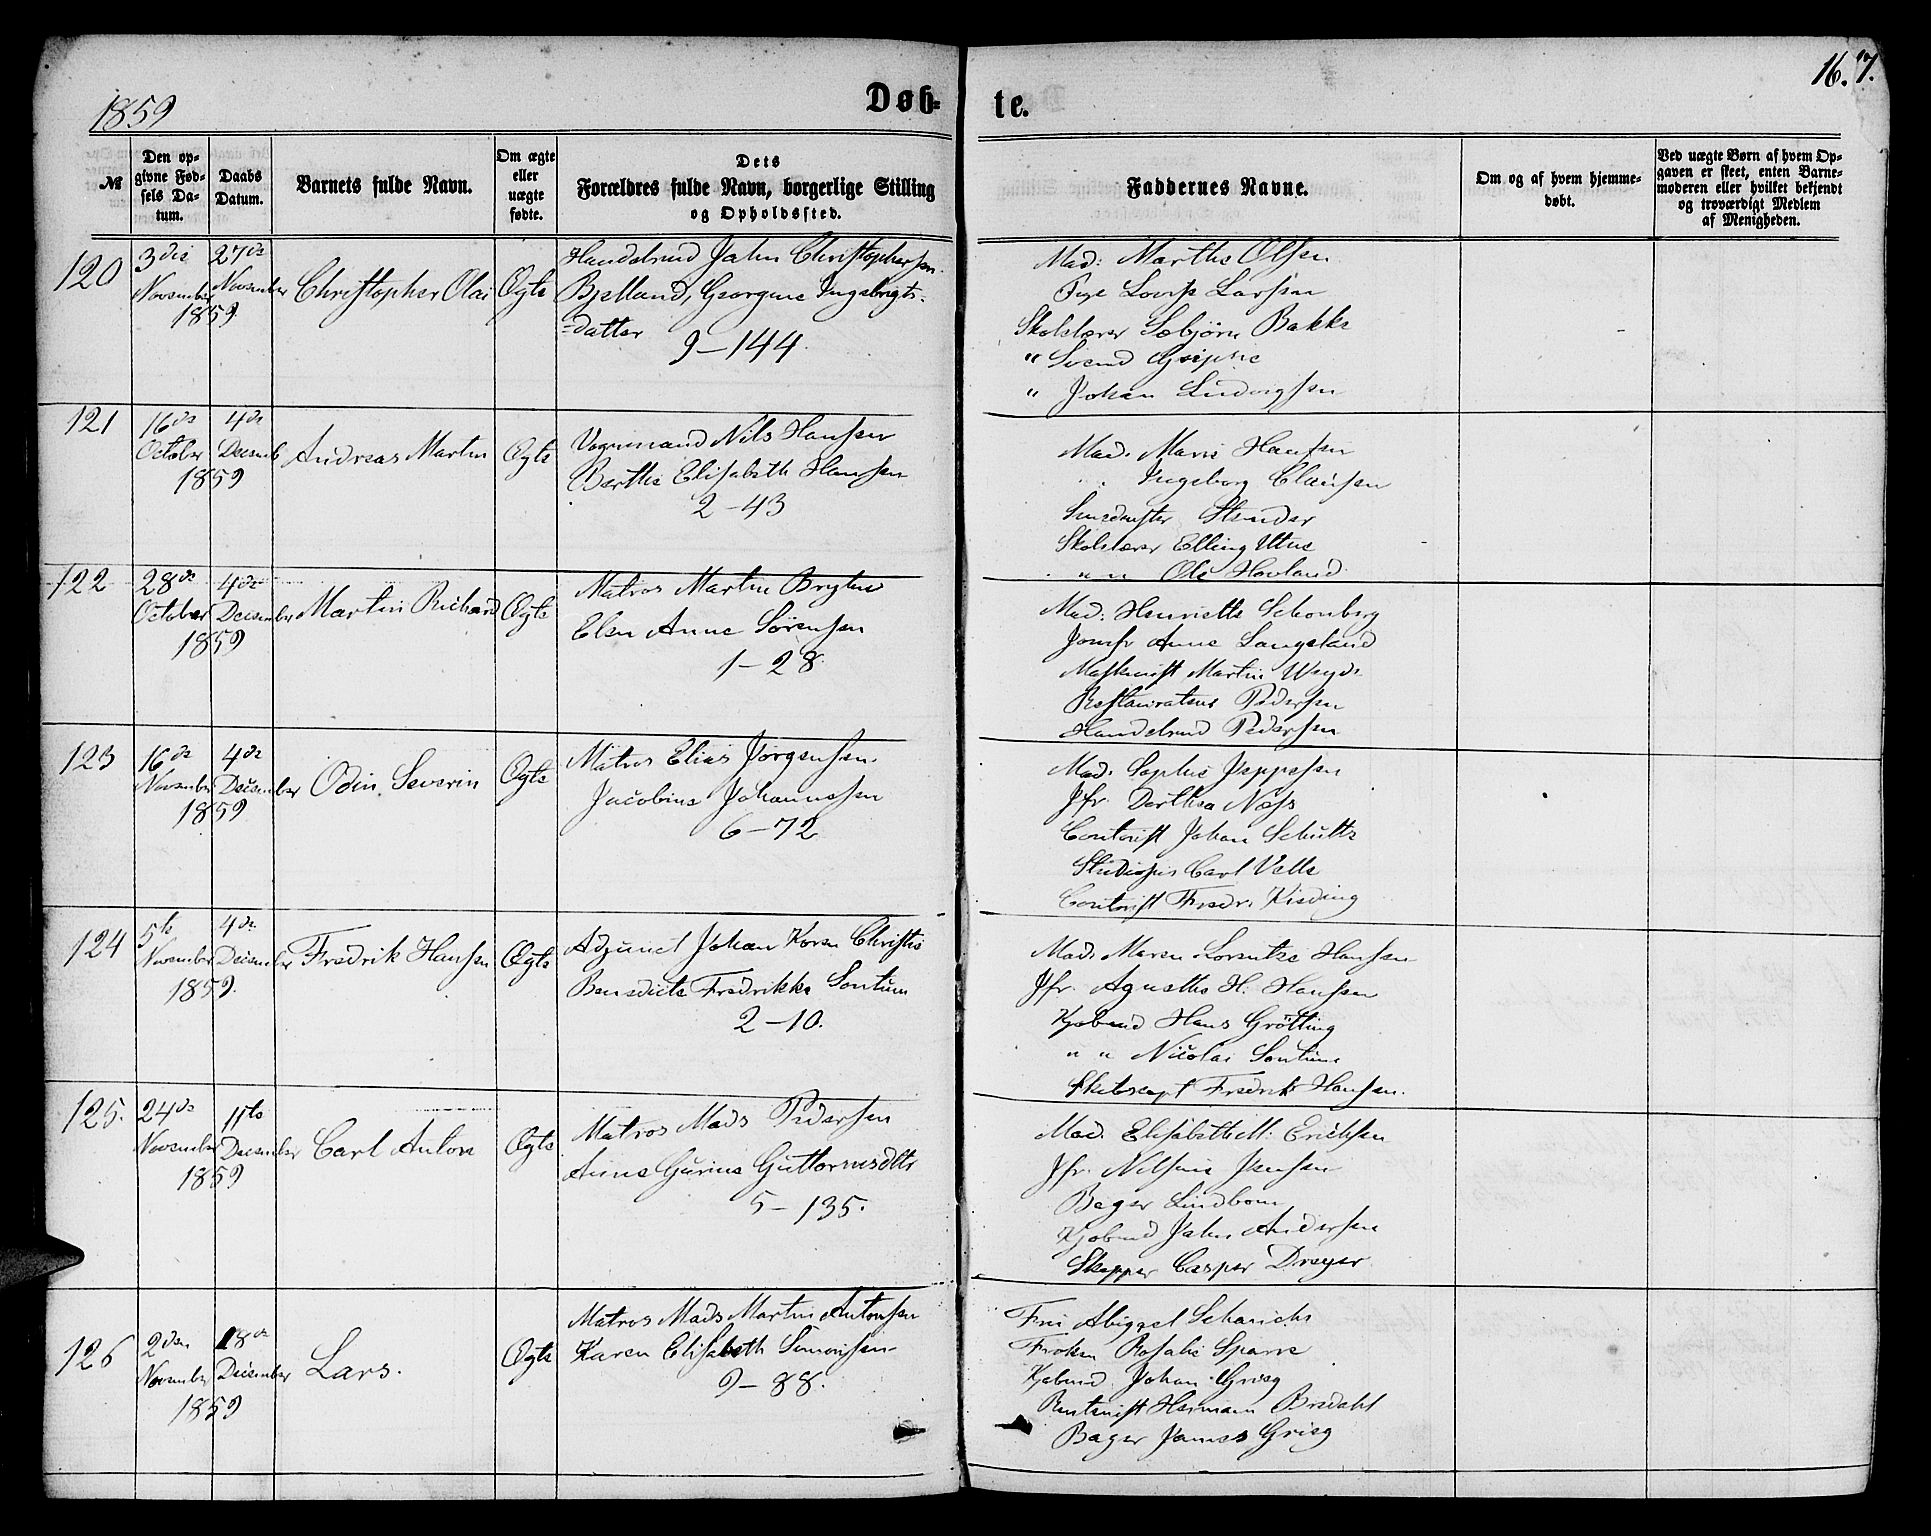 1859
Døb-
te.
16. 7.
№
Den op-
givne Fød-
sels Da-
tum.
Daabs
Datum.
Barnets fulde Navn.
Om ægte
eller
uægte
fødte.
Dets
Forældres fulde Navn, borgerlige Stilling
og Opholdssted.
Faddernes Navne.
Om og af hvem hjemme-
døbt.
Ved uægte Børn af hvem Op-
gaven er skeet, enten Barne-
moderen eller hvilket bekjendt
og troværdigt Medlem
af Menigheden.
120
3die
November
1859
27de
November
Christopher Olai
Ægte
Handelsmd John Christophersen
Bjelland, Georgine Ingebrigts-
datter
9-144.
Mad: Marthe Olsen
Pige Lovise Larsen
Skolelærer Sebjørn Bakke
" Svend
" Johan Ludvigsen
121
16de
October
1859
4de
Decemb
Andreas Martin
Ægte
Vognmand Nils Hansen
Berthe Elisabeth Hansen
2-43
Mad. Marie Hansen
" Ingeborg Clausen
Stender
Skolelærer Elling Utne
" " Ole Hovland
122
28de
October
1859
4de
December
Martin Richard
Ægte
Matros Martin
Elen Anne Sørensen
1-28
Mad: Henriette Schonberg
Jomfr Anne Langeland
Maskinist Martin
Restaurateur Pedersen
Handelsmd Pedersen
123
16de
November
1859
4de
December
Odin Severin
Ægte
Matros Elias Jørgensen
Jacobine Johannesen
6-72
Mad. Sophie Jeppesen
Jfr. Dorthea Næss
Contorist Johan Schultz
Studiosus Carl Valle
Contorist Fredr. Kisding
124
5te
November
1859.
4de
December
Fredrik Hansen
Ægte
Adjunct Johan Koren Christie
Benedicte Fredrikke Sontum
2-10.
Mad. Maren Lorentze Hansen
Jfr. Agnethe H. Hansen
Kjøbmd Hans Grötting
" " Nicolai Sontum
Fredrik Hansen.
125.
24de
November
1859
11te
December
Carl Anton
Ægte
Matros Mads Pedersen
Anne Gurine Guttormsdtr
5-135.
Mad. Elisabeth M. Erichsen
Jfr. Nilsine Jensen
Bager Lindbom
Kjøbmd John Andersen
Skipper Casper Dreyer
126
2den
November
1859
18de
December
Lars.
Ægte
Matros Mads Martin Antonsen
Karen Elisabeth Simonsen
9-88.
Fru Abigael
Frøken Rosalie Sparre
Kjøbmd. Johan Grieg
Herman Bredahl
Bager James Grieg